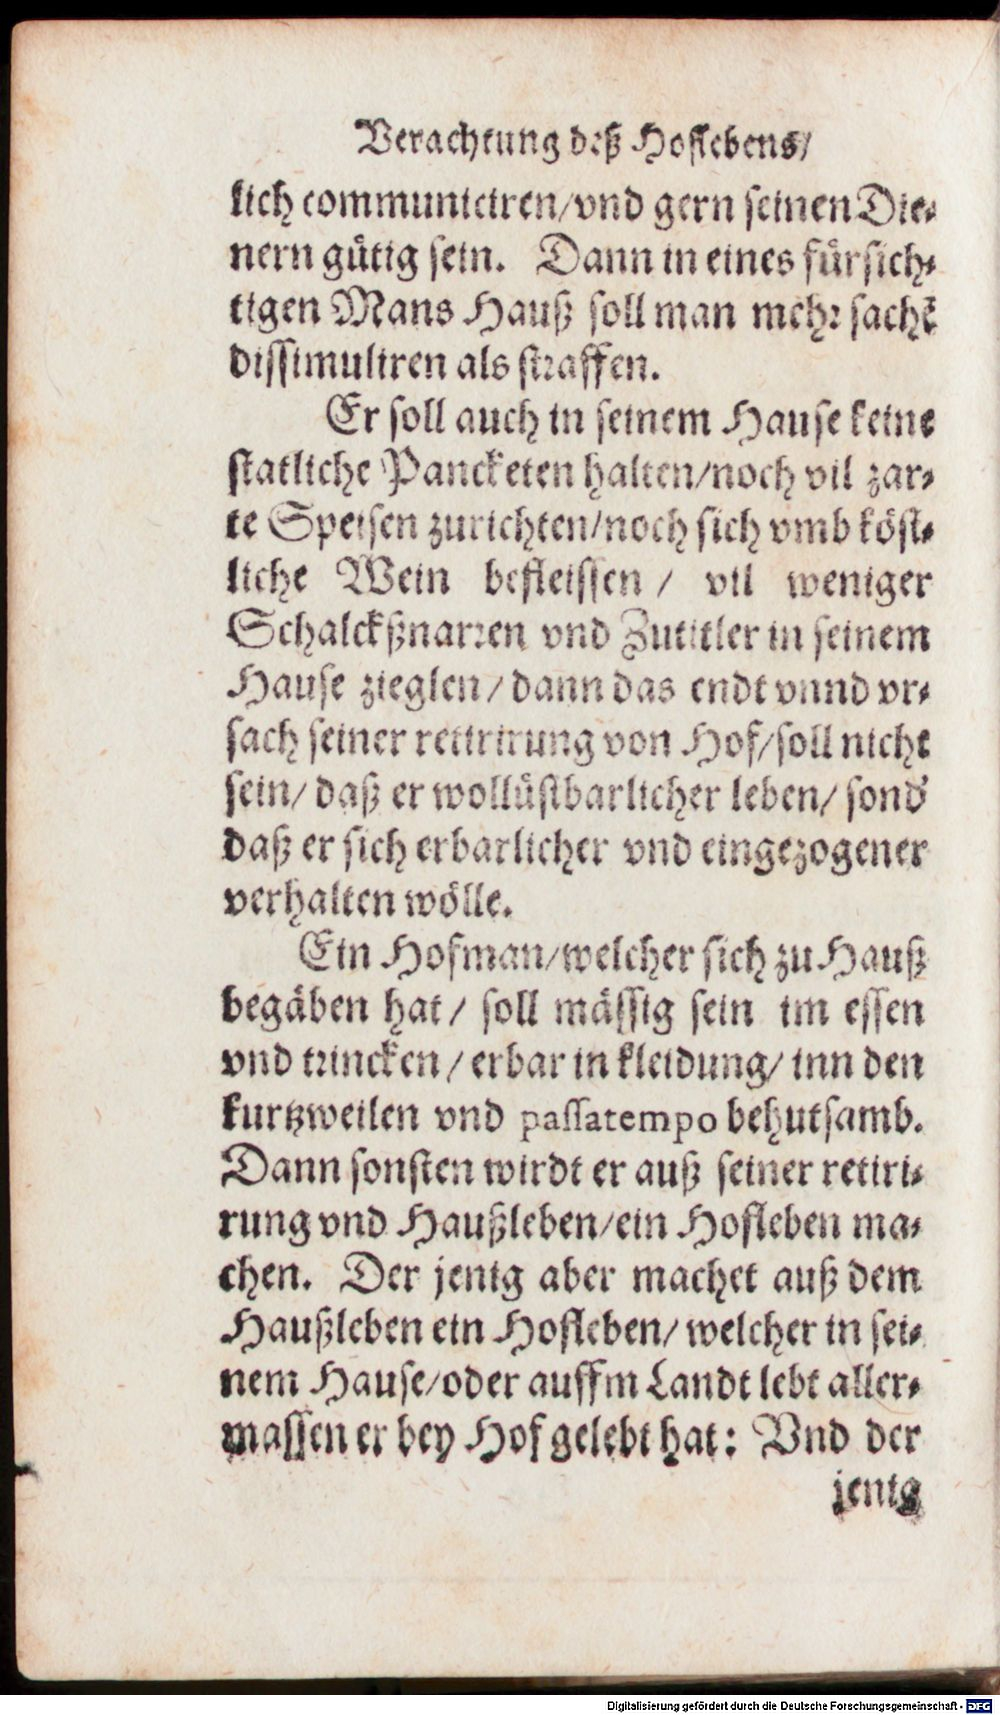 Verachtung deß Hoflebens/
lich communiciren/vnd gern seinen Die-
nern gütig sein. Dann in eines fürsich-
tigen Mans Hauß soll man mehr sachē
dissimuliren als straffen.
Er soll auch in seinem Hause keine
statliche Pancketen halten/noch vil zar-
te Speisen zurichten/noch sich vmb köst-
liche Wein befleissen / vil weniger
Schalckßnarren vnd Zutitler in seinem
Hause zieglen/ dann das endt vnnd vr-
sach seiner retirirung von Hof/soll nicht
sein/ daß er wollüstbarlicher leben/ sond'
daß er sich erbarlicher vnd eingezogener
verhalten wölle.
Ein Hofman/welcher sich zu Hauß
begäben hat / soll mässig sein im essen
vnd trincken / erbar in kleidung/ inn den
kurtzweilen vnd passatempo behutsamb.
Dann sonsten wirdt er auß seiner retiri-
rung vnd Haußleben/ein Hofleben ma-
chen. Der jenig aber machet auß dem
Haußleben ein Hofleben/ welcher in sei-
nem Hause/oder auffm Landt lebt aller-
massen er bey Hof gelebt hat: Vnd der
jenig
Digitalisierung gefördert durch die Deutsche Forschungsgemeinschaft - DFG